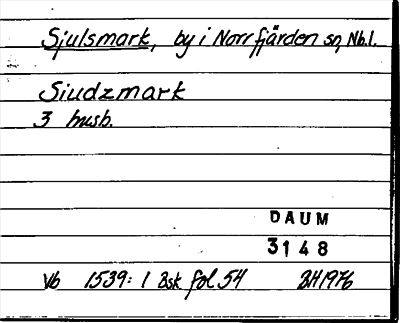 Sjulsmark, by i Norrfjärden sn, Nb.l.
Siudzmark
3 husb.
DAUM
3148
Vb 1539: 1 Bsk fol 54 BH1976